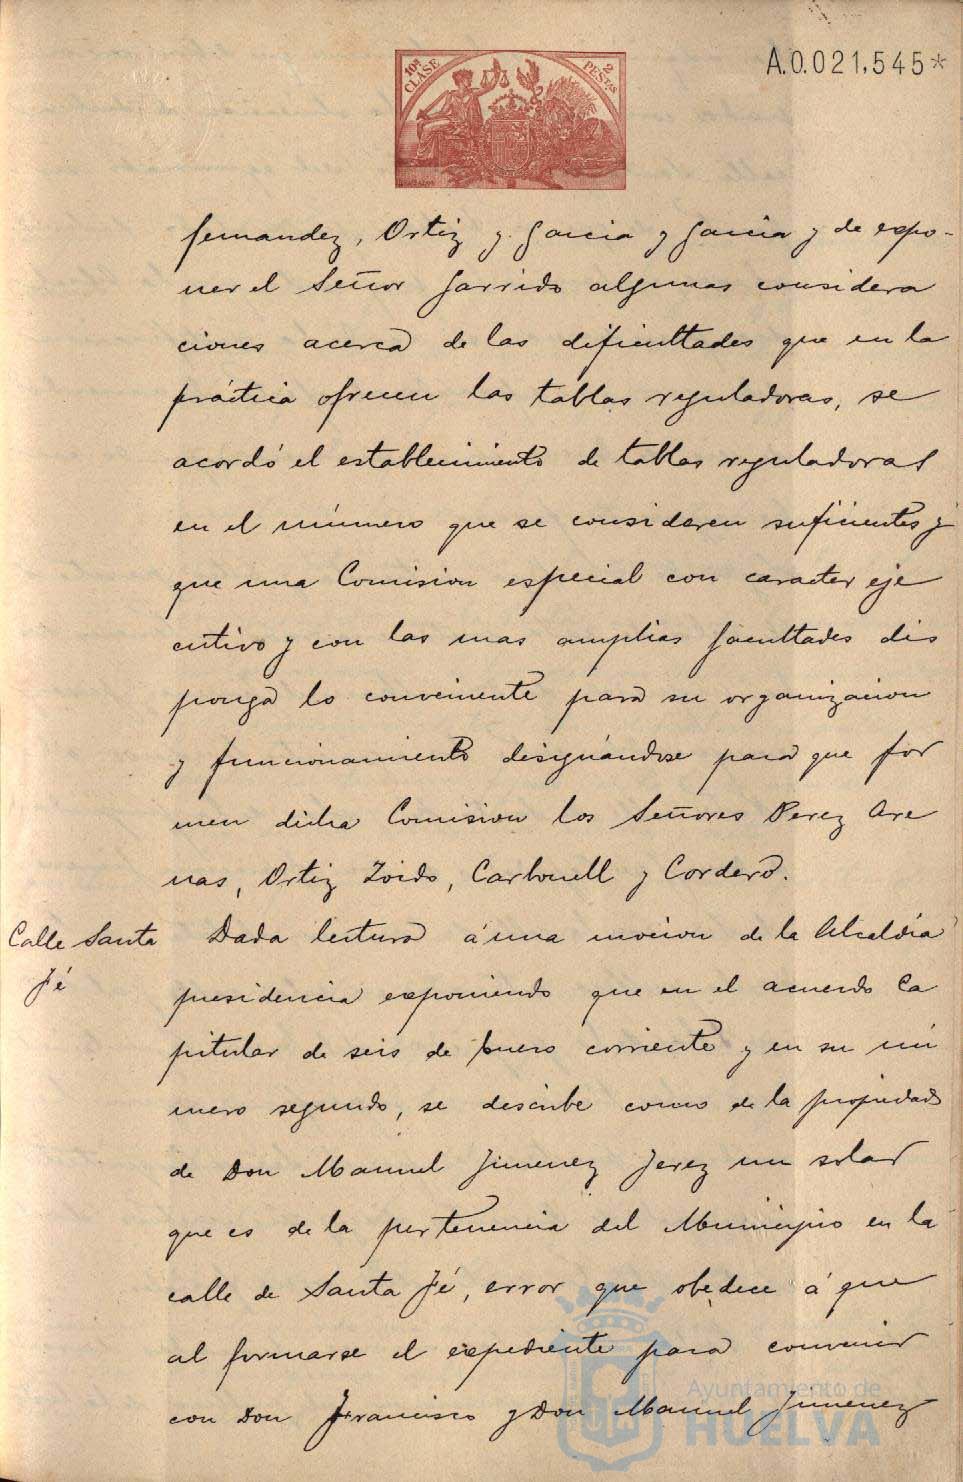 10ª CLASE
2 PESTAS
A.0.021,545*
fernandez, Ortiz y Garcia y Garcia y de expo-
ner el Señor Garrido algunas considera
ciones acerca de las dificultades que en la
práctica ofrecen las tablas reguladoras, se
acordó el establecimiento de tablas reguladoras
en el número que se consideren suficientes y
que una Comision especial con caracter eje
cutivo y con las mas amplias facultades dis
ponga lo conveniente para su organizacion
y funcionamiento designándose para que for
men dicha Comision los Señores Perez Are
nas, Ortiz Zoido, Carbonell y Cordero.
Calle Santa
Fé
Dada lectura á una mocion de la Alcaldía
presidencia exponiendo que en el acuerdo Ca
pitular de seis de Enero corriente y en su nú
mero segundo, se describe como de la propiedad
de Don Manuel Jimenez Jerez un solar
que es de la pertenencia del Municipio en la
calle de Santa Fé, error que obedece á que
al formarse el expediente para convenir
con Don Francisco y Don Manuel Jimenez
Ayuntamiento de
HUELVA